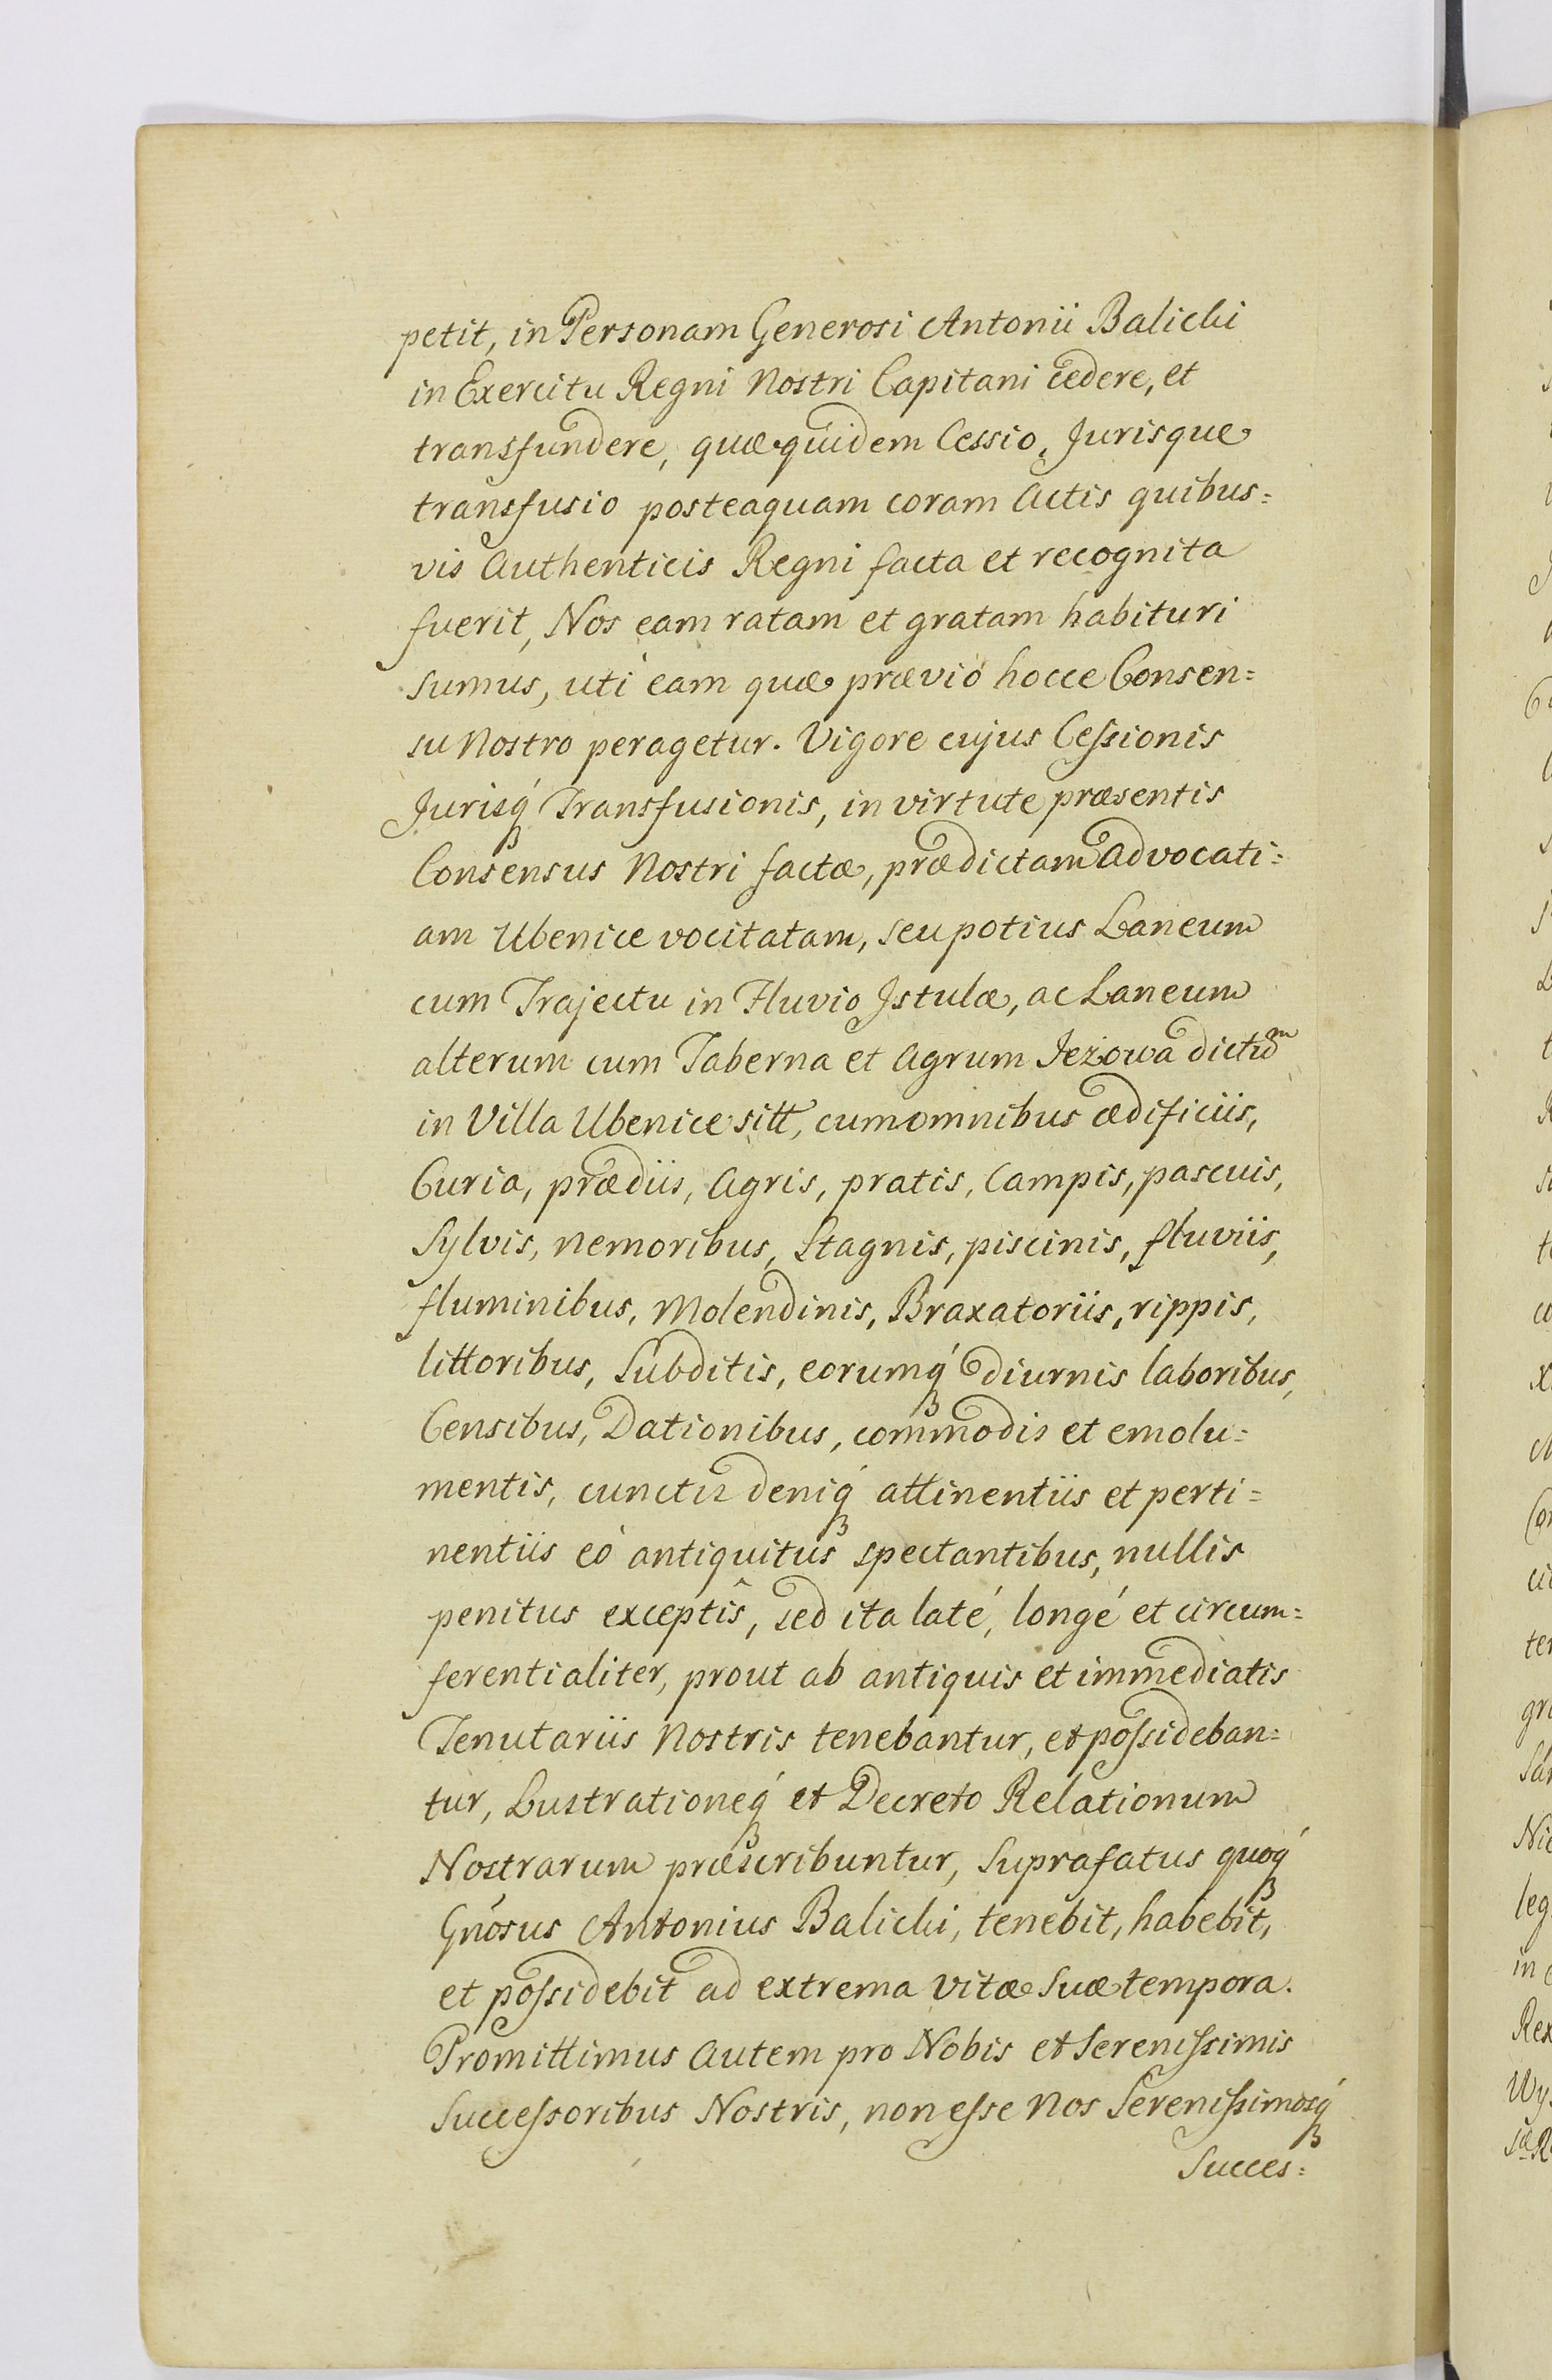 petit, in Personam Generosi Antonii Balicki
in Exercitu Regni Nostri Capitani cedere, et
transfundere, quæ quidem Cessio, Jurisque
transfusio posteaquam coram Actis quibus=
vis Authenticis Regni facta et recognita
fuerit, Nos eam ratam et gratam habituri
sumus, uti eam quæ prævió hocce Consen=
su Nostro peragetur. Vigore cujus Ceſsionis
Jurisq́ Transfusionis, in virtute præsentis
Consensus Nostri factæ, prædictam Advocati=
am Ubenice vocitatam, seu potius Laneum
cum Trajectu in Fluvio Istulæ, ac Laneum
alterum cum Taberna et Agrum Jeżowa dictũm
in Villa Ubenice sitt, cum omnibus ædificiis,
Curia, prædiis, Agris, pratis, Campis, pascuis,
Sylvis, nemoribus, Stagnis, piscinis, fluviis,
fluminibus, Molendinis, Braxatoriis, rippis,
littoribus, Subditis, eorumq́ diurnis laboribus,
Censibus, Dationibus, commodis et emolu=
mentis, cunctis deniq́ attinentiis et perti=
nentiis eó antiquitus spectantibus, nullis
penitus exceptîs, sed ita laté, longé et circum=
ferentialiter, prout ab antiquis et immediatis
Tenutariis Nostris tenebantur, et poſsideban=
tur, Lustrationeq́ et Decreto Relationum
Nostrarum præscribuntur, Suprafatus quoq́
Gnosus Antonius Balicki, tenebit, habebit,
et poſsidebit ad extrema vitæ suæ tempora.
Promittimus Autem pro Nobis et Sereniſsimis
Succeſsoribus Nostris, non eſse Nos Sereniſsimosq́
Succes=